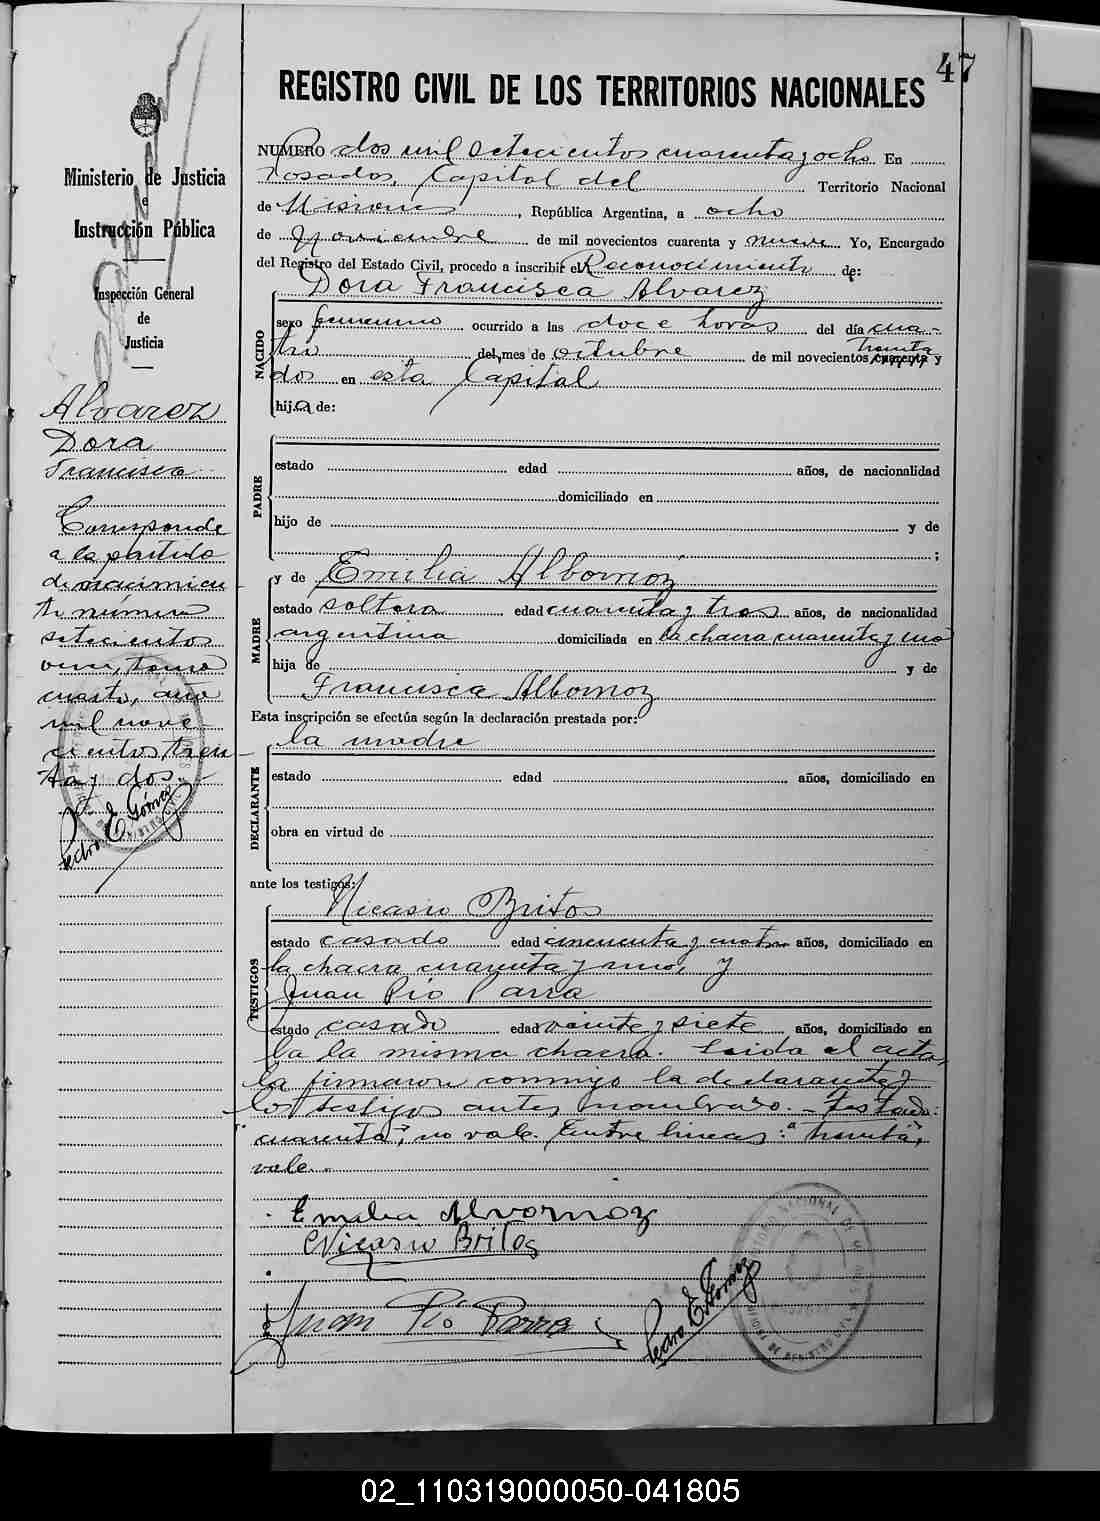 47
REGISTRO CIVIL DE LOS TERRITORIOS NACIONALES
Ministerio de Justicia
e
Instrucción Pública
Inspección General
de
Justicia
Alvarez
Dora
Francisca
Corresponde
a la partida
de nacimien
to número
setecientos
once, tomo
cuarto, año
mil nove-
cientos trein
ta y dos.-
Pedro E. Gómez
NUMERO dos mil setecientos cuarenta y ocho En
Posadas, Capital del Territorio Nacional
de Misiones, República Argentina, a ocho
de Noviembre de mil novecientos cuarenta y nueve Yo, Encargado
del Registro del Estado Civil, procedo a inscribir el Reconocimiento de:
Dora Francisca Alvarez
NACIDO
sexo femenino ocurrido a las doce horas del día cua-
tro del mes de octubre de mil novecientos cuarenta treinta y
dos en esta Capital
hija de:
PADRE
estado edad años, de nacionalidad
domiciliado en
hijo de y de
;
MADRE
y de Emilia Albornóz
estado soltera edad cuarenta y tres años, de nacionalidad
argentina domiciliada en la chacra cuarenta y uno
hija de y de
Francisca Albornoz
Esta inscripción se efectúa según la declaración prestada por:
la madre
DECLARANTE
estado edad años, domiciliado en
obra en virtud de
ante los testigos:
Nicasio Britos
TESTIGOS
estado casado edad cincuenta y cuatro años, domiciliado en
la chacra cuarenta y uno, y
Juan Pío Parra
estado casado edad veinte y siete años, domiciliado en
la misma chacra. Leida el acta,
la firmaron conmigo la declarante y
los testigos antes nombrados.- Testado:
"cuarenta", no vale. Entre lineas: "treinta",
vale.-
Emilia Alvornoz
Nicasio Britos
Juan Pío Parra
Pedro E. Gómez
02_110319000050-041805